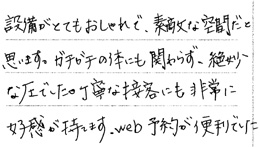 設備がとてもおしゃれで、素敵な空間だと
思います。ガチガチの体にも関わらず、絶妙
な圧でした。丁寧な接客にも非常に
好感が持てます。web予約が便利でした